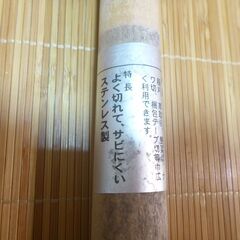 特長
よく切れて、サビにくい
ステンレス製
ワ切、梱包テープ切等巾広
く利用できます。